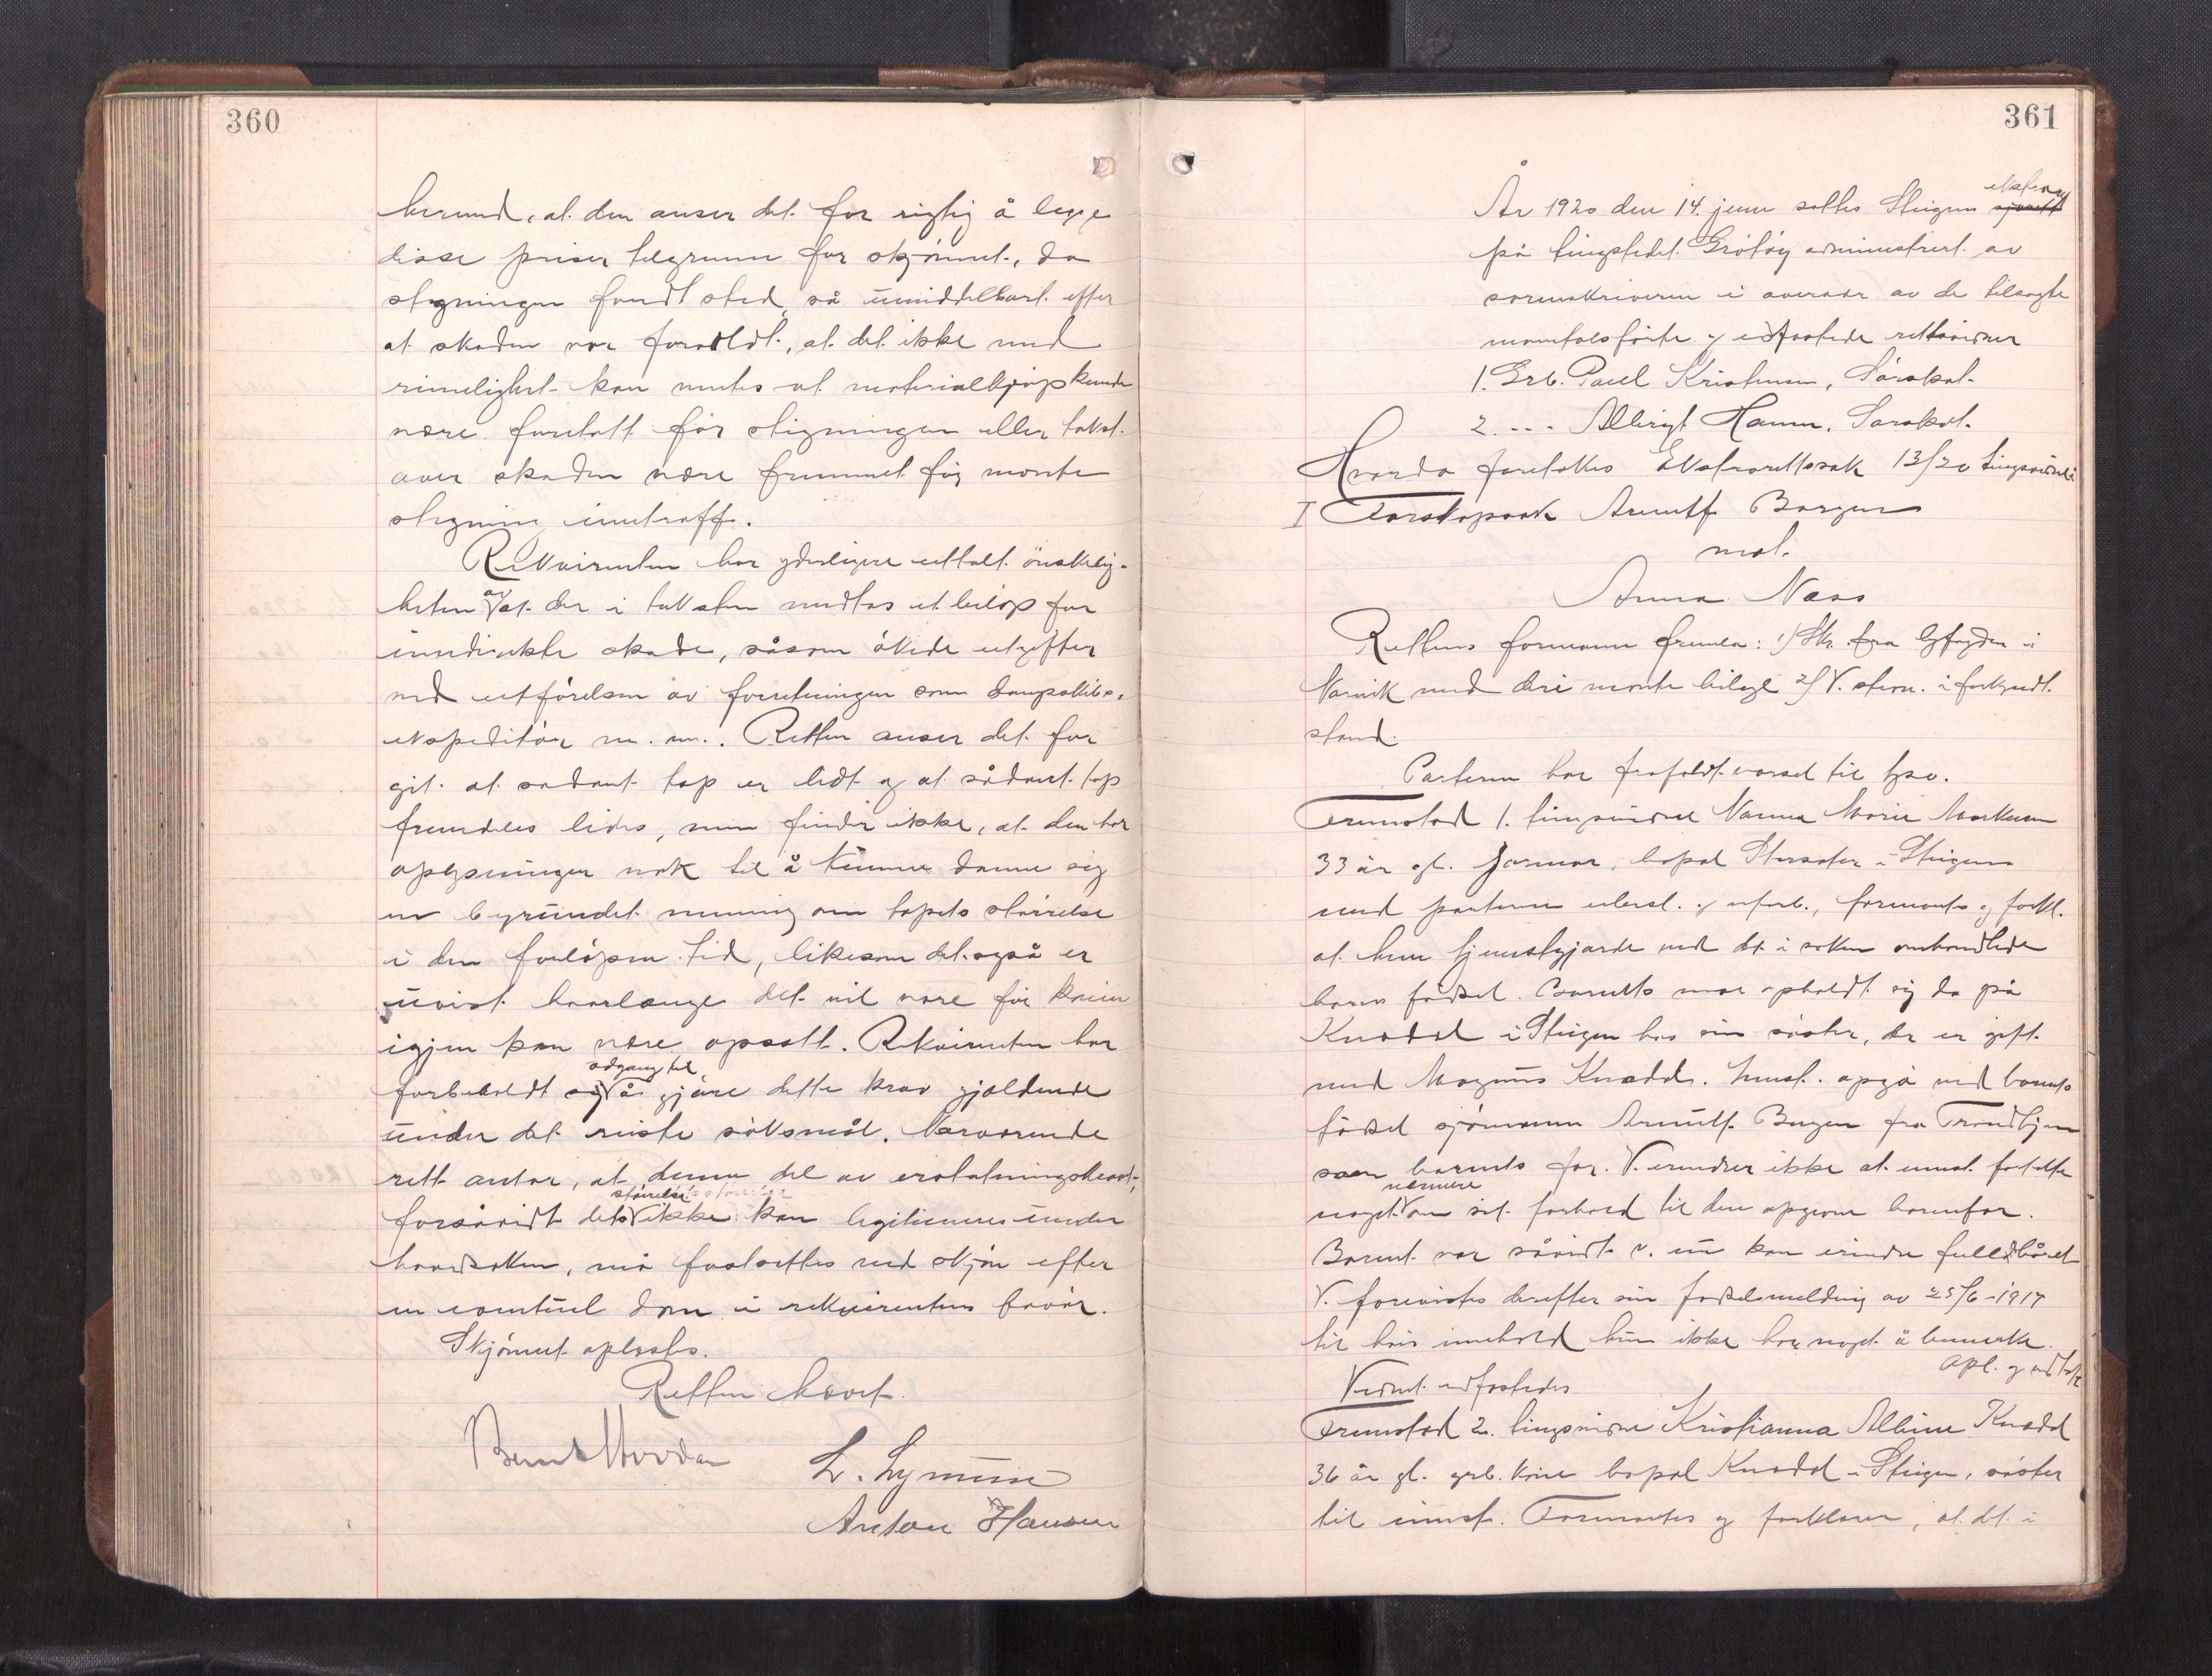 360
herund, at den anser det for rigtig å legge
disse priser tilgrunn for skjønnet, da
stigningen fandt sted så umiddelbart efter
at skaden var forvoldt, at det ikke med
rimelighet kan ventes at materialkjøp kunde
være foretatt før stigningen eller takst
over skaden være fremmet før nevnte
stigning inntraff.
Rekvirenten har yderligere uttalt ønskelig-
heten av at der i taksten medtas et beløp for
inndirekte skade, såsom økede utgifter
ved utførelsen av forretningen som dampskibs-
ekspeditør m. m.. Retten anser det for
git at sådant tap er lidt og at sådant tap
fremdeles lides, men finder ikke, at den har
oplysninger nok til å kunne danne sig
en begrundet mening om tapets størrelse
i den forløpne tid, likesom det også er
uvist hvorlænge det vil vare før kaien
igjen kan være opsatt. Rekvirenten har
forbeholdt sig adgang til å gjøre dette krav gjældende
under det reiste søksmål. Nærværende
rett antar, at denne del av erstatningskravet,
forsåvidt dets størrelse ikke kan legitimeres under
hovedsaken, må fastsettes ved skjøn efter
en eventuel dom i rekvirentens favør.
Skjønnet oplæstes.
Retten hævet.
L. Lynum
Anton Hansen
361
År 1920 den 14. juni sattes Steigen ekstrarett
på tingstedet Grøtøy administrert av
sorenskriveren i overvær av de tilsagte
manntalsførte og edfæstede rettsvidner
1. Grb. Paul Kristensen, Sørskot.
2. - - - Albrigt Hamn. Sørskot.
Hvorda foretokes Ekstrarettssak 13/20 tingsvidne i
I Farskapssak Arnulf Borgen
mot.
Anna Næss
Rettens formann fremla: 1) Skr. fra byfogden i
Narvik med deri nevnte bilage 2) V. stevn. i forkyndt
stand.
Parterne har frafaldt varsel til tgsv.
Fremstod 1. tingsvidne Nanna Marie Markussen
33 år gl. jormor, bopæl i Steigen
med parterne ubesl. og ubesv., formantes og forkl.
at hun tjenstgjorde ved det i saken omhandlede
barns fødsel. Barnets mor opholdt sig da på
Knædal i Steigen hos sin søster, der er gift
med Magnus Knædal. Innst. opga ved barnets
fødsel sjømann Arnulf Borgen fra Trondhjem
som barnets far. V. erindrer ikke at innst. fortalte
noget nærmere om sit forhold til den opgivne barnefar.
Barnet var såvidt v. nu kan erindre fuldbåret
V. forevistes derefter sin fødselsmelding av 25/6-1917
til hvis innehold hun ikke har noget å bemerke.
Opl. og vedtat
Vidnet edfæstedes
Fremstod 2. tingsvidne Kristianna Albine Knædal
36 år gl. grb. kone bopæl Knædal i Steigen, søster
til innst. Formantes og forklarer, at det i